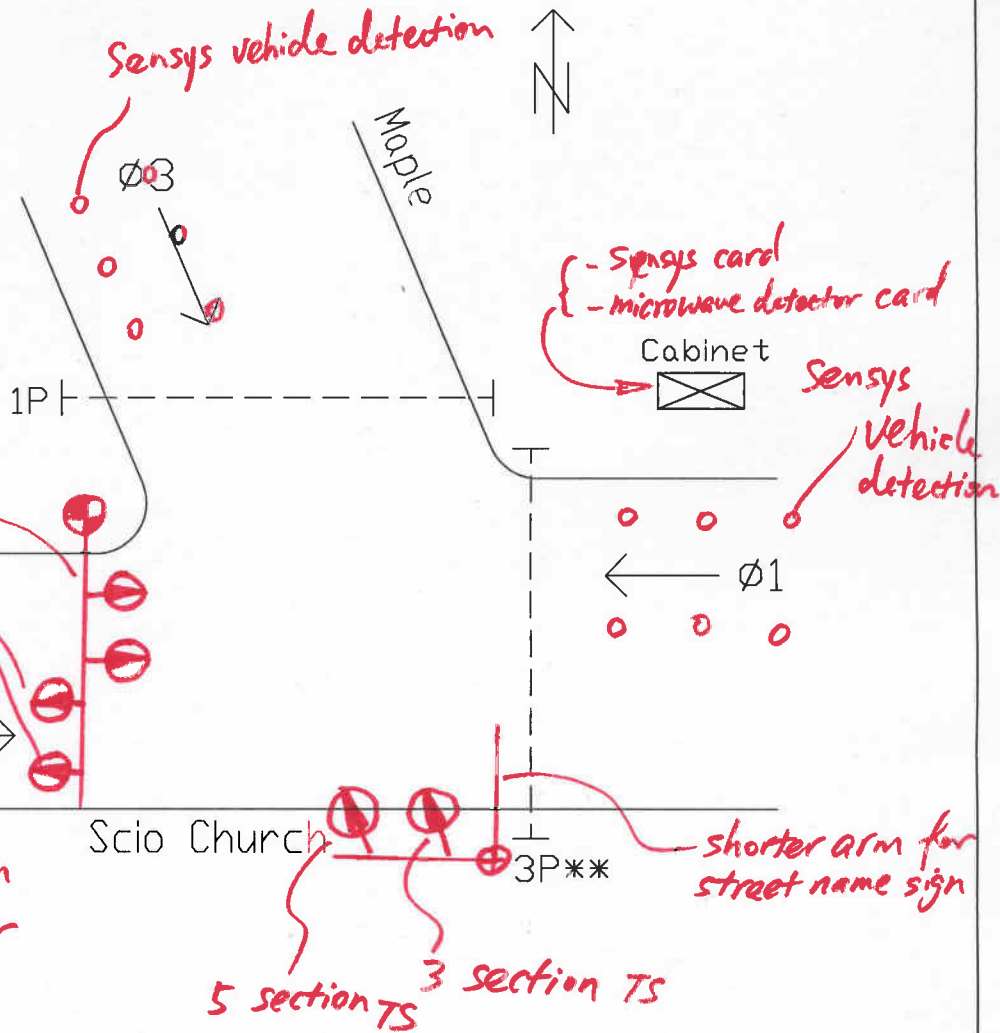 Sensys vehicle detection
N
Ø3
Maple
- Sensys card
- microwave detector card
Cabinet
1P
Sensys
vehicle
detection
Ø1
Scio Church
3P**
shorter arm for
street name sign
5 section TS
3 section TS